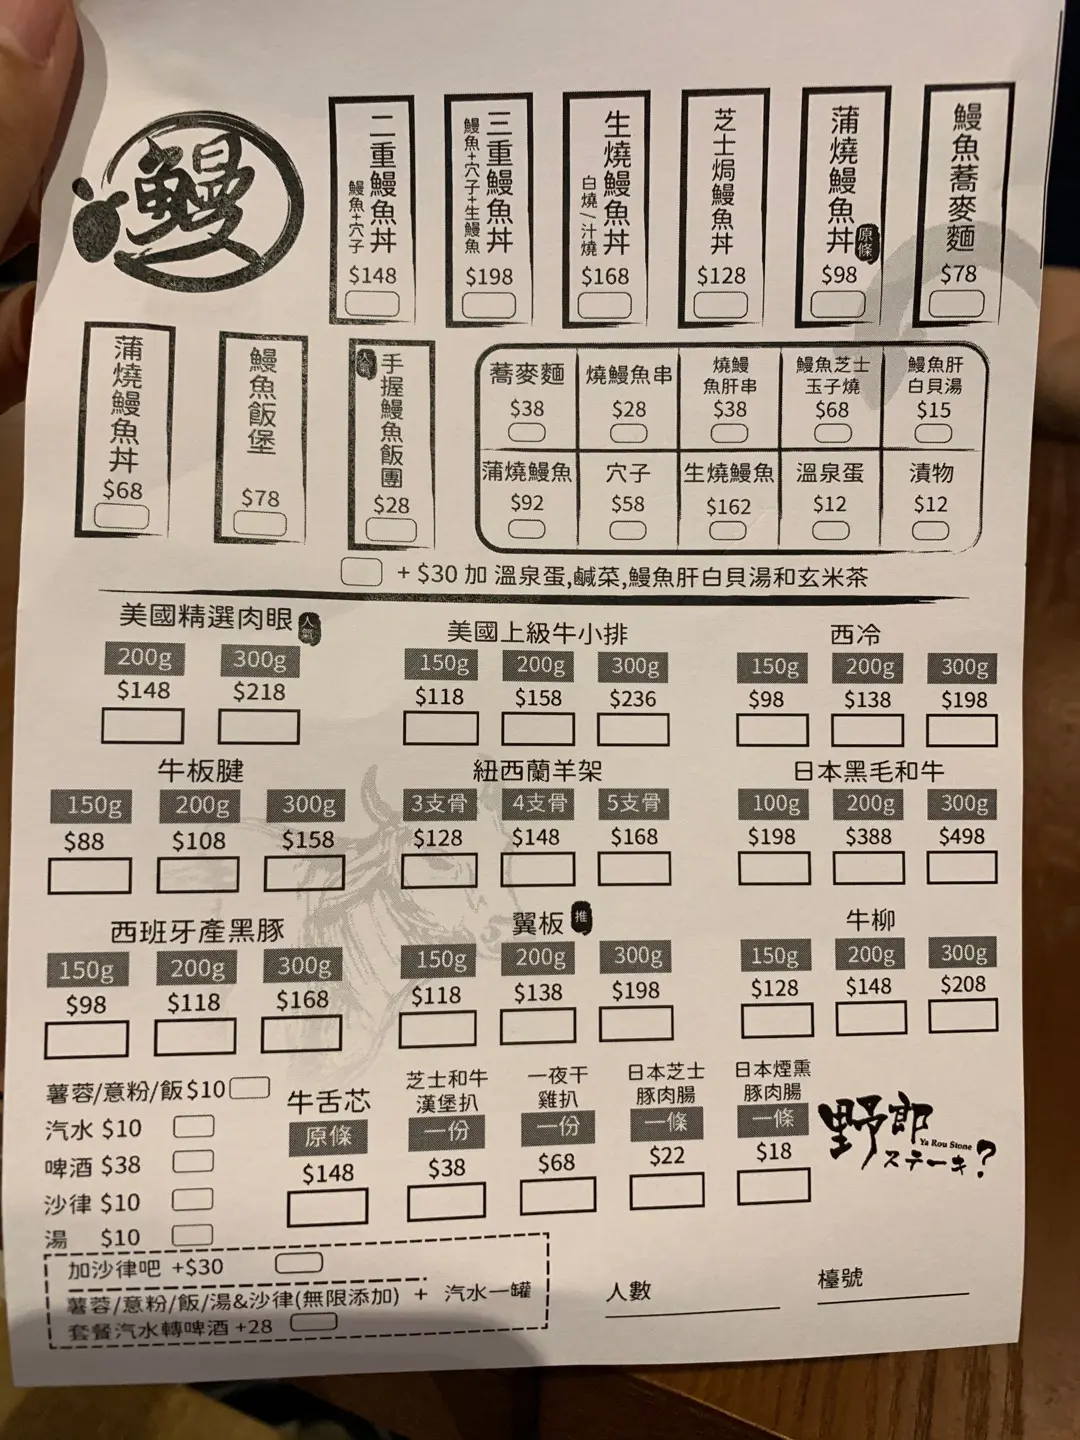 鰻
二重鰻魚丼
鰻魚+穴子
$148
三重鰻魚丼
鰻魚+穴子+生鰻魚
$198
生燒鰻魚丼
白燒/汁燒
$168
芝士焗鰻魚丼
$128
蒲燒鰻魚丼
原條
$98
鰻魚蕎麥麵
$78
蒲燒鰻魚丼
$68
鰻魚飯堡
$78
人氣
手握鰻魚飯團
$28
蕎麥麵
$38
燒鰻魚串
$28
燒鰻
魚肝串
$38
鰻魚芝士
玉子燒
$68
鰻魚肝
白貝湯
$15
蒲燒鰻魚
$92
穴子
$58
生燒鰻魚
$162
溫泉蛋
$12
漬物
$12
+ $30 加 溫泉蛋,鹹菜,鰻魚肝白貝湯和玄米茶
美國精選肉眼 人氣
200g 300g
$148 $218
美國上級牛小排
150g 200g 300g
$118 $158 $236
西冷
150g 200g 300g
$98 $138 $198
牛板腱
150g 200g 300g
$88 $108 $158
紐西蘭羊架
3支骨 4支骨 5支骨
$128 $148 $168
日本黑毛和牛
100g 200g 300g
$198 $388 $498
西班牙產黑豚
150g 200g 300g
$98 $118 $168
翼板 推
150g 200g 300g
$118 $138 $198
牛柳
150g 200g 300g
$128 $148 $208
薯蓉/意粉/飯 $10
汽水 $10
啤酒 $38
沙律 $10
湯 $10
牛舌芯
原條
$148
芝士和牛
漢堡扒
一份
$38
一夜干
雞扒
一份
$68
日本芝士
豚肉腸
一條
$22
日本煙熏
豚肉腸
一條
$18
野郎
Ya Rou Stone
ステーキ?
加沙律吧 +$30
薯蓉/意粉/飯/湯&沙律(無限添加) + 汽水一罐
套餐汽水轉啤酒 +28
人數
檯號